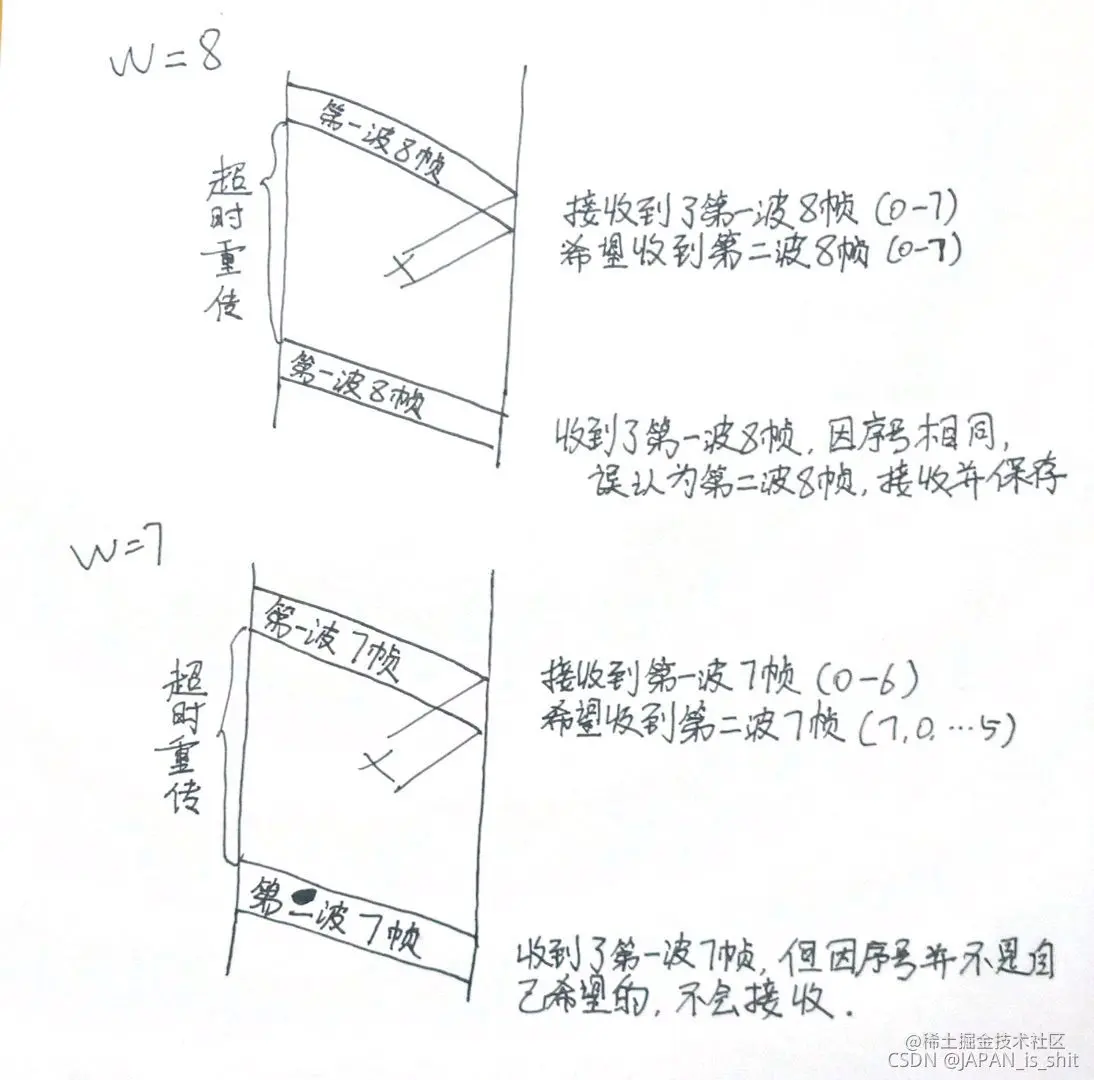 W=8
第一波8帧
超时重传
接收到了第一波8帧(0-7)
希望收到第二波8帧(0-7)
第一波8帧
收到了第一波8帧,因序号相同,
误认为第二波8帧,接收并保存
W=7
第一波7帧
超时重传
接收到第一波7帧(0-6)
希望收到第二波7帧(7,0,…5)
第一波7帧
收到了第一波7帧,但因序号并不是自
己希望的,不会接收.
@稀土掘金技术社区
CSDN @JAPAN_is_shit